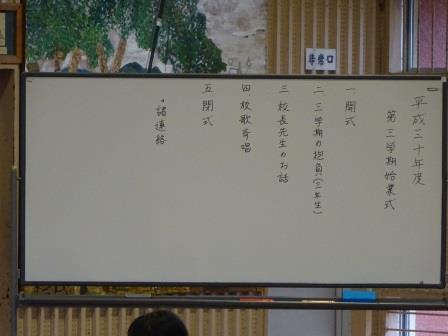 平成三十年度
第三学期始業式
一 開式
二 三学期の抱負(三年生)
三 校長先生のお話
四 校歌斉唱
五 閉式
・諸連絡
非常口